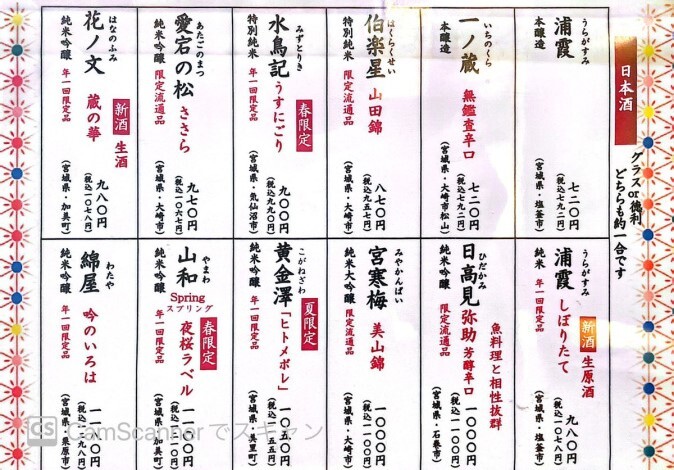 日本酒
グラスor徳利
どちらも約一合です
うらがすみ
浦霞
本醸造
七二〇円
(税込七九二円)
(宮城県・塩釜市)
いちのくら
一ノ蔵
無鑑査辛口
本醸造
七二〇円
(税込七九二円)
(宮城県・大崎市松山)
はくらくせい
伯楽星
山田錦
特別純米
限定流通品
八七〇円
(税込九五七円)
(宮城県・大崎市)
みずとりき
水鳥記
うすにごり
春限定
特別純米
年一回限定品
九〇〇円
(税込九九〇円)
(宮城県・気仙沼市)
あたごのまつ
愛宕の松
ささら
純米吟醸
限定流通品
九七〇円
(税込一〇六七円)
(宮城県・大崎市)
はなのふみ
花ノ文
蔵の華
新酒
生酒
純米吟醸
年一回限定品
九八〇円
(税込一〇七八円)
(宮城県・加美町)
うらがすみ
浦霞
しぼりたて
新酒
生原酒
純米
年一回限定品
九八〇円
(税込一〇七八円)
(宮城県・塩釜市)
魚料理と相性抜群
ひだかみ
日高見
弥助
芳醇辛口
純米吟醸
限定流通品
一〇〇〇円
(税込一一〇〇円)
(宮城県・石巻市)
みやかんばい
宮寒梅
美山錦
純米大吟醸
限定流通品
一〇〇〇円
(税込一一〇〇円)
(宮城県・大崎市)
こがねざわ
黄金澤
「ヒトメボレ」
夏限定
純米吟醸
年一回限定品
一〇五〇円
(税込一一五五円)
(宮城県・美里町)
やまわ
山和
Spring
スプリング
夜桜ラベル
春限定
純米吟醸
年一回限定品
(宮城県・加美町)
わたや
綿屋
吟のいろは
純米吟醸
年一回限定品
(宮城県・栗原市)
CS CamScannerでスキャン